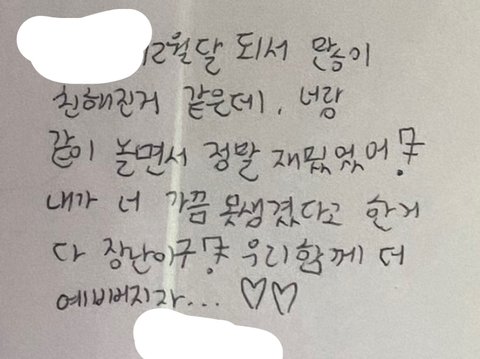 12월달 되서 많이
친해진거 같은데, 너랑
같이 놀면서 정말 재밌었어!
내가 너 가끔 못생겼다고 한거
다 장난이구! 우리함께 더
예뻐지자... ♡♡